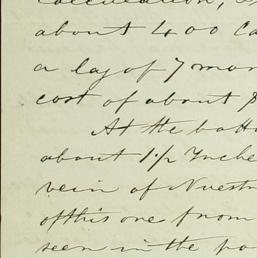 calculation,
about 400 Ca
a lay of 7 mon
cost of about $
At the botto
about 1 1/2 Inche
vein of Nuestr
of this one from
seen in the po